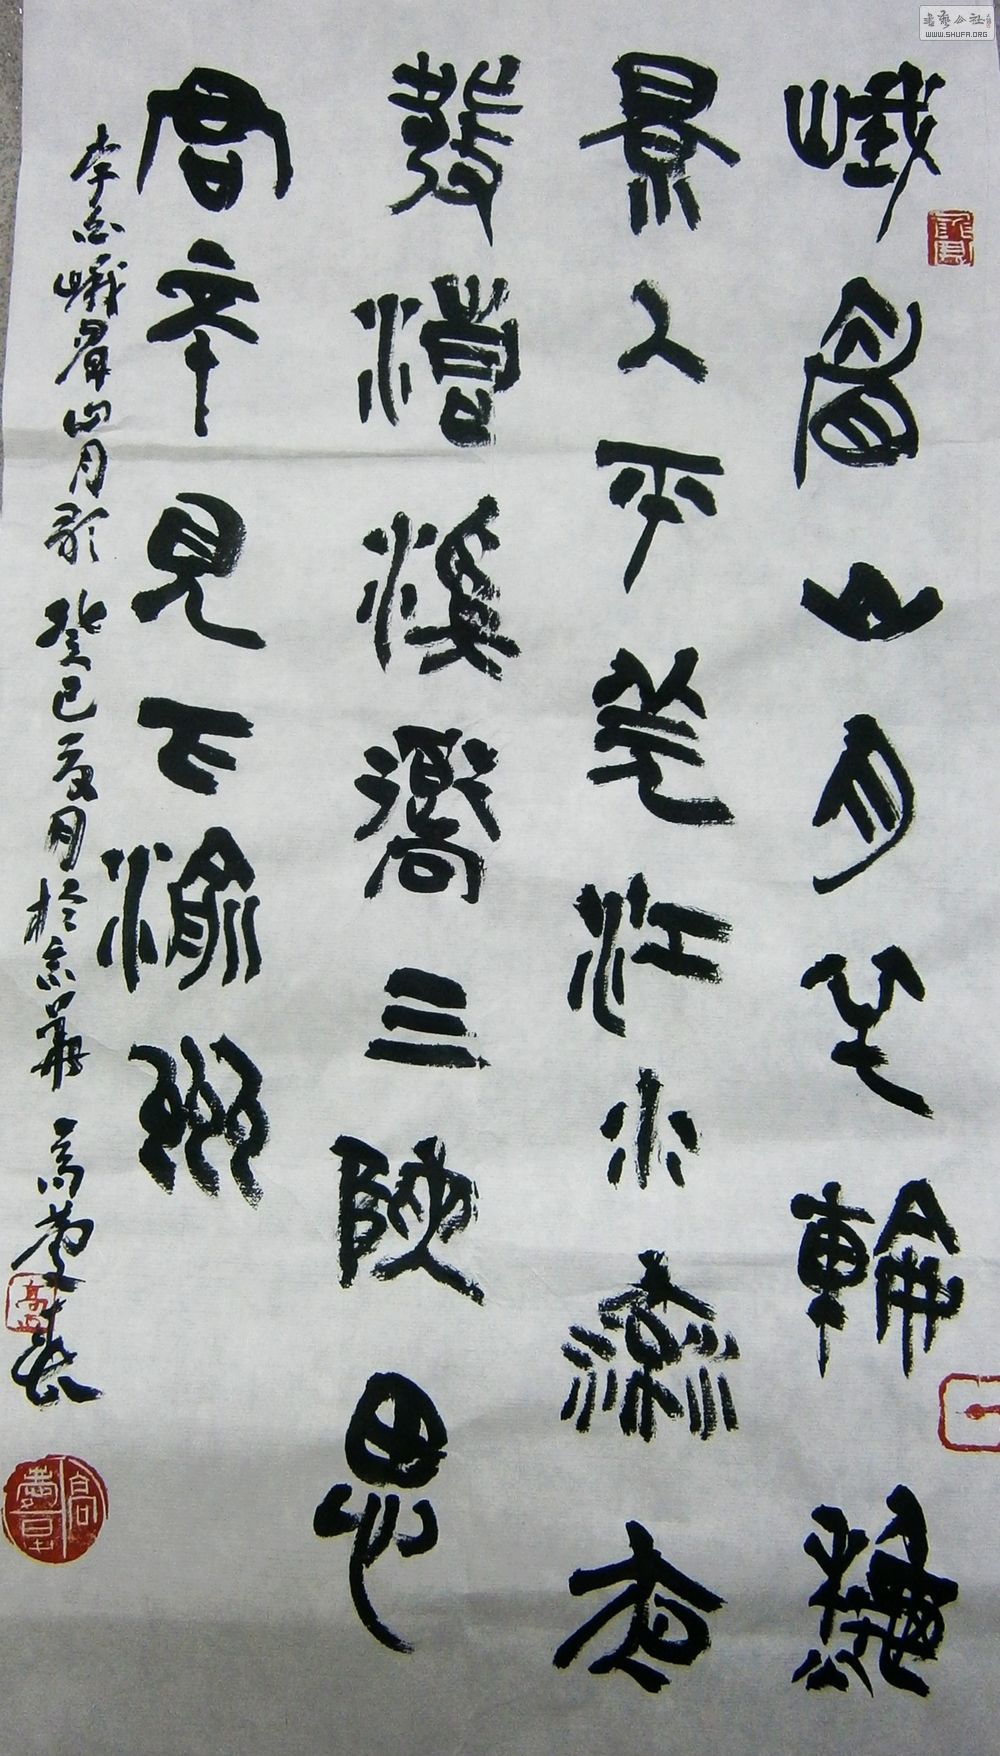 書藝公社
WWW.SHUFA.ORG
峨眉山月半輪龝
景入平羌江水流夜
發清溪嚮三陜思
君不見下渝州
李白峨眉山月歌 癸巳夏月於京華 高慶